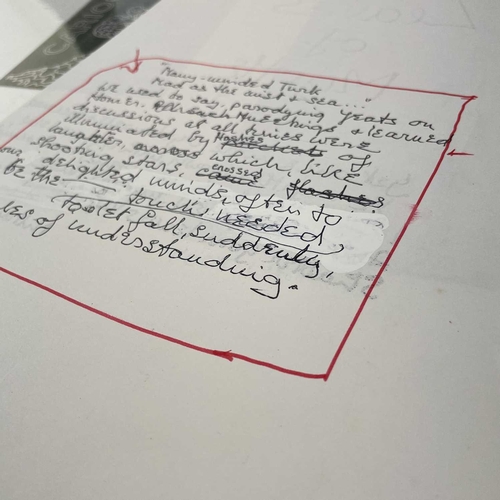 "Many-minded Turk
Mad as the mist & sea..."
we used to say, parodying Yeats on
Homer. All such meetings & learned
discussions at all times were
illuminated by flashes of
laughter, which, like
shooting stars, crossed
our delighted minds, often to
be the touch needed,
to let fall, suddenly,
of understanding.